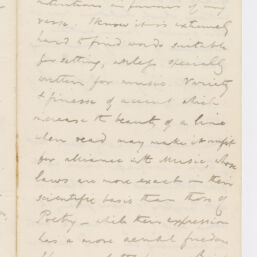 intentions in favour of my
verse. I know it is extremely
hard to find words suitable
for setting, unless specially
written for music. Variety
& finesse of accent which
increase the beauty of a line
when read may make it unfit
for alliance with Music, whose
laws are more exact in their
scientific basis than those of
Poetry – while their expression
has a more aerial freedom